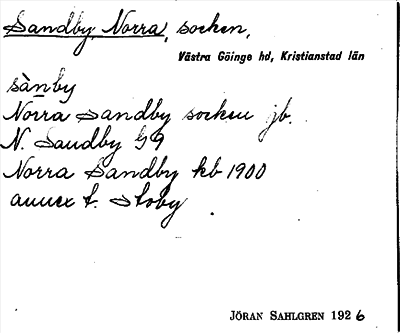 Sandby, Norra, socken,
Västra Göinge hd, Kristianstad län
sànby
Norra Sandby socken jb.
N. Sandby G 9
Norra Sandby kb 1900
annex t. Stoby.
JÖRAN SAHLGREN 1926